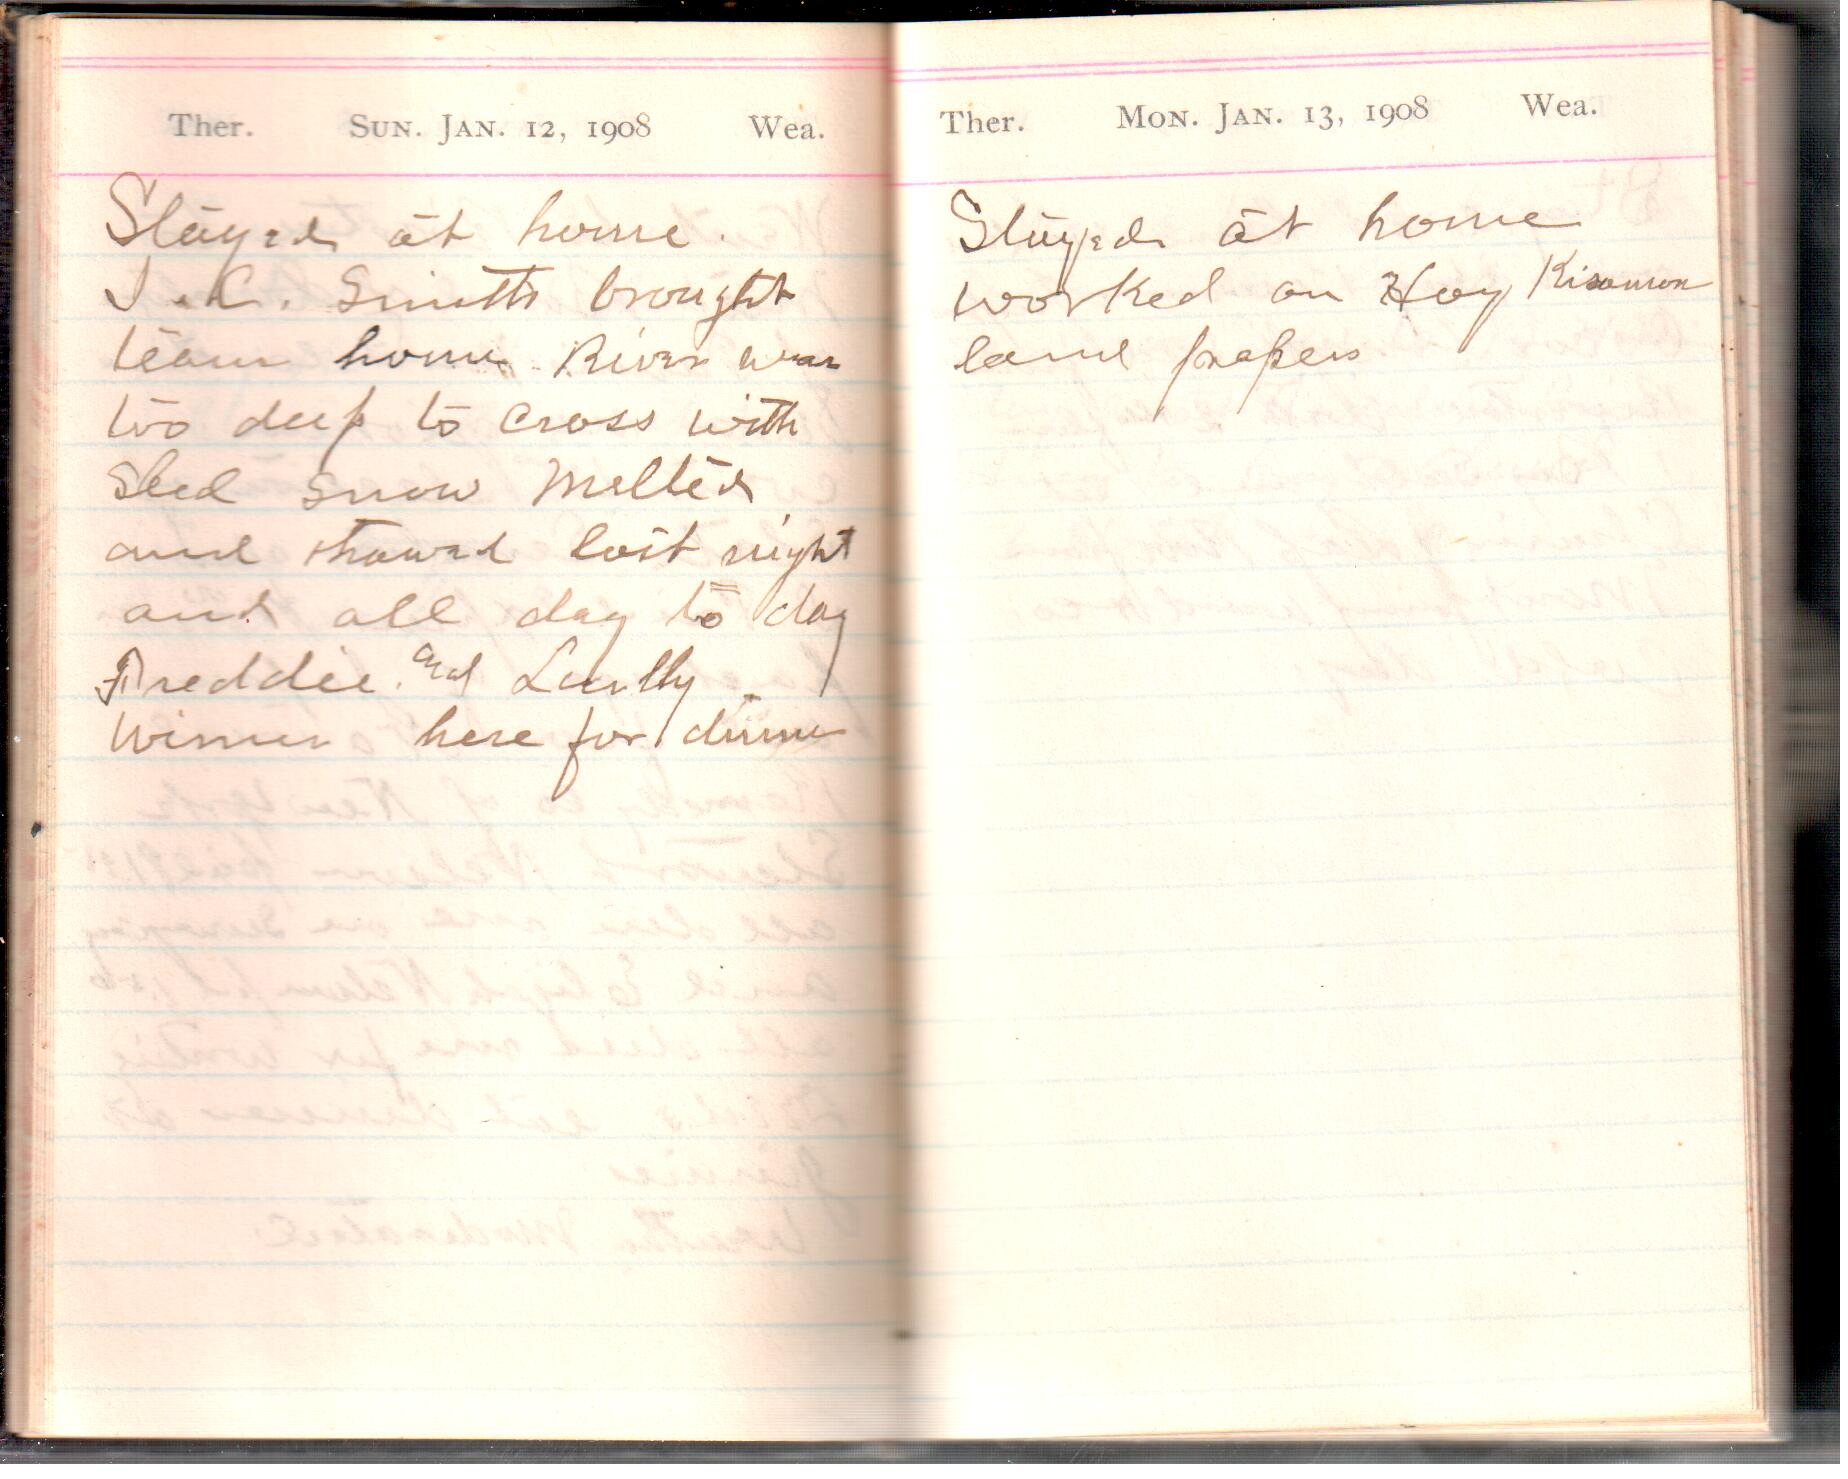 Ther. Sun. Jan. 12, 1908 Wea.
Stayed at home.
J. C. Smith brought
team home River was
too deep to cross with
sled snow melted
and thawed last night
and all day to day
Freddie and
here for dinner
Ther. Mon. Jan. 13, 1908 Wea.
Stayed at home
worked on Hoy
land papers